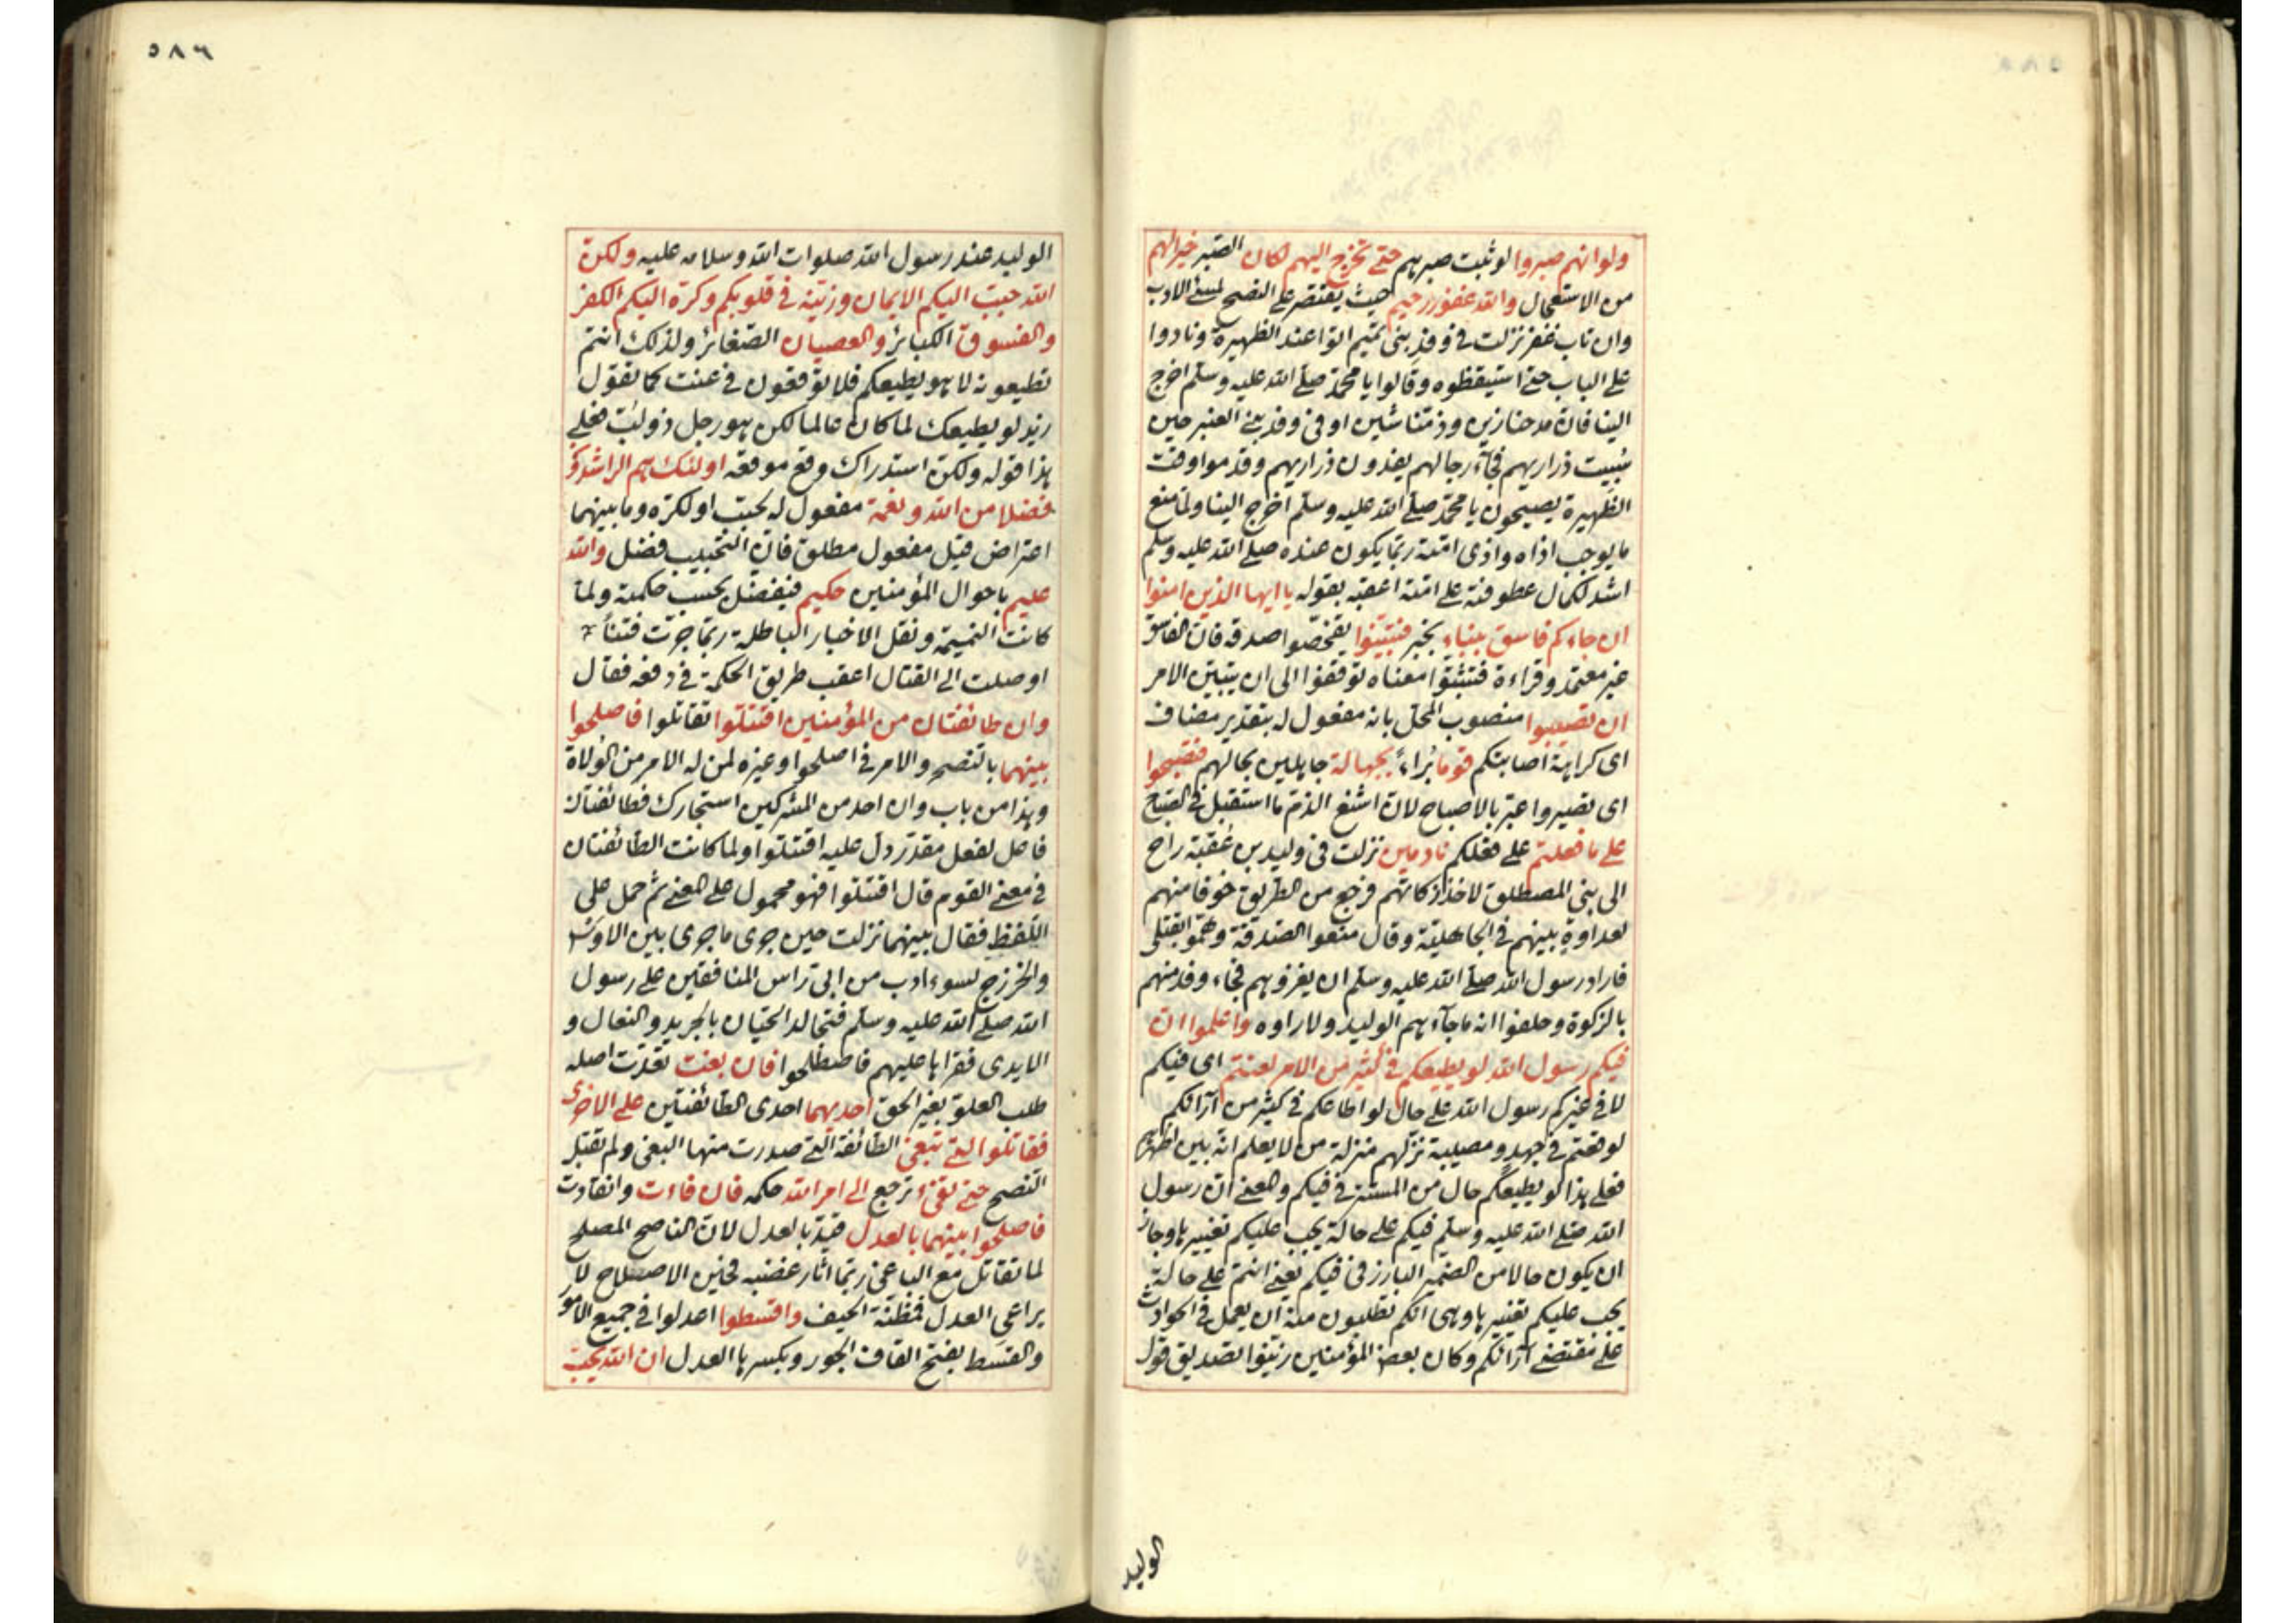 ولو انهم صبروا لو ثبت صبرهم حتى تخرج اليهم لكان الصبر خيرا لهم
من الاستعجال والله غفور رحيم حيث يقتصر على النصح لمسئ الادب
وان تاب غفر نزلت في وفد بنى تميم اتوا عند الظهيرة ونادوا
على الباب حتى استيقظوه وقالوا يا محمد صلى الله عليه وسلم اخرج
الينا فان مدحنا زين وذمتنا شين او في وفد بنى العنبر حين
سبيت ذراريهم فجآء رجالهم يفدون ذراريهم وقدموا وقت
الظهيرة يصيحون يا محمد صلى الله عليه وسلم اخرج الينا ولما منع
ما يوجب اذاه واذى امته ربما يكون عنده صلى الله عليه وسلم
اشد لكمال عطوفته على امته اعقبه بقوله يا ايها الذين امنوا
ان جاءكم فاسق بنباء بخبر فتبينوا تفحصوا صدقه فان الفاسق
غير معتمد وقراءة فتثبتوا معناه توقفوا الى ان يتبين الامر
ان تصيبوا منصوب المحل بانه مفعول له بتقدير مضاف
اى كراهة اصابتكم قوما برآء بجهالة جاهلين بحالهم فتصبحوا
اى تصيروا عبر بالاصباح لان اشنع الذم ما استقبل في الصباح
على ما فعلتم على فعلكم نادمين نزلت في وليد بن عقبة راح
الى بنى المصطلق لاخذ زكاتهم فرجع من الطريق خوفا منهم
لعداوة بينهم في الجاهلية وقال منعوا الصدقة وهموا بقتلى
فاراد رسول الله صلى الله عليه وسلم ان يغزوهم فجاء وفد منهم
بالزكوة وحلفوا انه ما جآءهم الوليد ولا راوه واعلموا ان
فيكم رسول الله لو يطيعكم في كثير من الامر لعنتم اى فيكم
لا في غيركم رسول الله على حال لو اطاعكم في كثير من آرائكم
لوقعتم في جهد ومصيبة نزلهم منزلة من لا يعلم انه بين اظهرهم
فعلى هذا لو يطيعكم حال من المستتر في فيكم والمعنى ان رسول
الله صلى الله عليه وسلم فيكم على حالة يجب عليكم تغييرها وجاز
ان يكون حالا من الضمير البارز في فيكم يعنى انتم على حالة
يجب عليكم تغييرها وهى انكم تطلبون منه ان يعمل في الحوادث
على مقتضى آرائكم وكان بعض المؤمنين زينوا تصديق قول
الوليد
٥٨٦
الوليد عند رسول الله صلوات الله وسلامه عليه ولكن
الله حبب اليكم الايمان وزينه في قلوبكم وكره اليكم الكفر
والفسوق الكبائر والعصيان الصغائر ولذلك انتم
تطيعونه لا هو يطيعكم فلا توقعون في عنت كما تقول
زيد لو يطيعك لما كان عالما لكن هو رجل ذو لب فعلى
هذا قوله ولكن استدراك وقع موقعه اولئك هم الراشدون
فضلا من الله ونعمة مفعول له لحبب او لكره وما بينهما
اعتراض قيل مفعول مطلق فان التحبيب فضل والله
عليم باحوال المؤمنين حكيم فيفضل بحسب حكمته ولما
كانت النميمة ونقل الاخبار الباطلة ربما جرت فتنا
او صلت الى القتال اعقب طريق الحكمة في دفعه فقال
وان طائفتان من المؤمنين اقتتلوا تقاتلوا فاصلحوا
بينهما بالنصح والامر في اصلحوا وغيره لمن له الامر من الولاة
وهذا من باب وان احد من المشركين استجارك فطائفتان
فاعل لفعل مقدر دل عليه اقتتلوا ولما كانت الطائفتان
في معنى القوم قال اقتتلوا فهو محمول على المعنى ثم حمل على
اللفظ فقال بينهما نزلت حين جرى ما جرى بين الاوس
والخزرج لسوء ادب من ابى راس المنافقين على رسول
الله صلى الله عليه وسلم فتجالد الحيان بالجريد والنعال و
الايدى فقراها عليهم فاصطلحوا فان بغت تعدت اصله
طلب العلو بغير الحق احديهما احدى الطائفتين على الاخرى
فقاتلوا التى تبغى الطائفة التى صدرت منها البغى ولم تقبل
النصح حتى تفئ ترجع الى امر الله حكمه فان فاءت وانقادت
فاصلحوا بينهما بالعدل قيد بالعدل لان الناصح المصلح
لما تقاتل مع الباغى ربما اثار غضبه فحين الاصلاح لا
يراعى العدل فمظنة الحيف واقسطوا اعدلوا في جميع الامور
والقسط بفتح القاف الجور وبكسرها العدل ان الله يحب